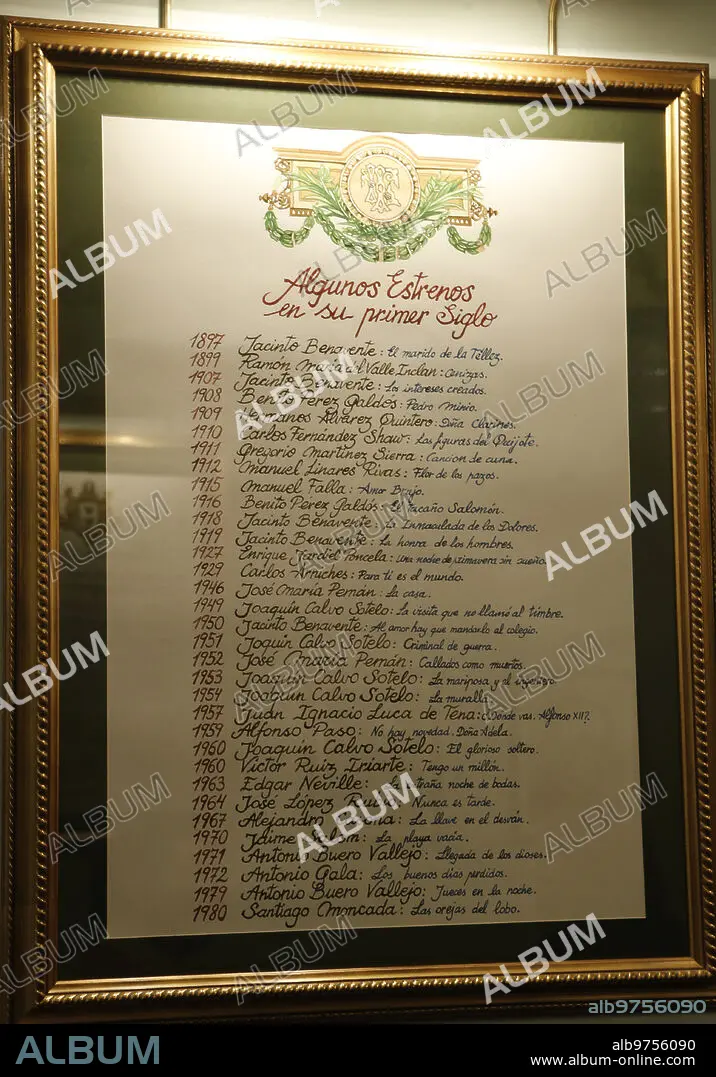 Algunos Estrenos
en su primer Siglo
1897 Jacinto Benavente: El marido de la Téllez.
1899 Ramón María del Valle Inclan: Cenizas.
1907 Jacinto Benavente: Los intereses creados.
1908 Benito Pérez Galdós: Pedro Minio.
1909 Hermanos Alvarez Quintero: Dña Clarines.
1910 Carlos Fernández Shaw: Las figuras del Quijote.
1911 Gregorio Martínez Sierra: Cancion de cuna.
1912 Manuel Linares Rivas: Flor de los pazos.
1915 Manuel Falla: Amor Brujo.
1916 Benito Pérez Galdós: El tacaño Salomón.
1918 Jacinto Benavente: La Inmaculada de los Dolores.
1919 Jacinto Benavente: La honra de los hombres.
1927 Enrique Jardiel Poncela: Una noche de primavera sin sueño.
1929 Carlos Arniches: Para ti es el mundo.
1946 José María Pemán: La casa.
1949 Joaquín Calvo Sotelo: La visita que no llamó al timbre.
1950 Jacinto Benavente: Al amor hay que mandarlo al colegio.
1951 Joquin Calvo Sotelo: Criminal de guerra.
1952 José María Pemán: Callados como muertos.
1953 Joaquín Calvo Sotelo: La mariposa y el ingeniero.
1954 Joaquín Calvo Sotelo: La muralla.
1957 Juan Ignacio Luca de Tena: ¿Dónde vas, Alfonso XII?
1959 Alfonso Paso: No hay novedad, Doña Adela.
1960 Joaquín Calvo Sotelo: El glorioso soltero.
1960 Víctor Ruíz Iriarte: Tengo un millón.
1963 Edgar Neville: La extraña noche de bodas.
1964 José López Rubio: Nunca es tarde.
1967 Alejandro Casona: La llave en el desván.
1970 Jaime Salom: La playa vacía.
1971 Antonio Buero Vallejo: Llegada de los dioses.
1972 Antonio Gala: Los buenos días perdidos.
1979 Antonio Buero Vallejo: Jueces en la noche.
1980 Santiago Moncada: Las orejas del lobo.
alb9756090
ALBUM
alb9756090
www.album-online.com